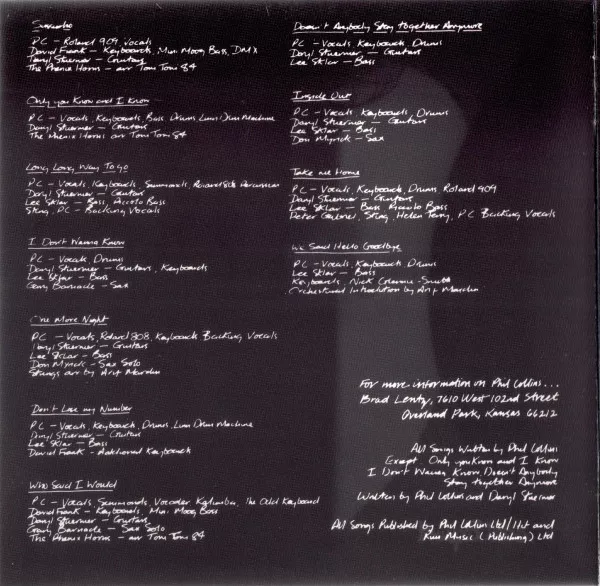 Sussudio
PC - Roland 909, Vocals
David Frank - Keyboards, Mini Moog Bass, DMX
Daryl Stuermer - Guitars
The Phenix Horns - arr Tom Tom 84
Only you Know and I Know
PC - Vocals, Keyboards, Bass Drums, Linn Drum Machine
Daryl Stuermer - Guitars
The Phenix Horns arr Tom Tom 84
Long Long Way To go
PC - Vocals, Keyboards, Simmonds, Roland 808 Percussion
Daryl Stuermer - Guitars
Lee Sklar - Bass, Piccolo Bass
Sting, PC - Backing Vocals
I Don't Wanna Know
PC - Vocals, Drums
Daryl Stuermer - Guitars, Keyboards
Lee Sklar - Bass
Gary Barnacle - Sax
One More Night
PC - Vocals, Roland 808, Keyboards Backing Vocals
Daryl Stuermer - Guitars
Lee Sklar - Bass
Don Myrick - Sax Solo
Strings arr by Arif Mardin
Don't Lose my Number
PC - Vocals, Keyboards, Drums, Linn Drum Machine
Daryl Stuermer - Guitars
Lee Sklar - Bass
David Frank - Additional Keyboards
Who Said I Would
PC - Vocals Simmonds, Vocoder Kalimba, The Odd Keyboard
David Frank - Keyboards, Mini Moog Bass
Daryl Stuermer - Guitars
Gary Barnacle - Sax Solo
The Phenix Horns - arr Tom Tom 84
Doesn't Anybody Stay together Anymore
PC - Vocals Keyboards, Drums
Daryl Stuermer - Guitars
Lee Sklar - Bass
Inside Out
PC - Vocals Keyboards, Drums
Daryl Stuermer - Guitars
Lee Sklar - Bass
Don Myrick - Sax
Take me Home
PC - Vocals, Keyboards, Drums Roland 909
Daryl Stuermer - Guitars
Lee Sklar - Bass Piccolo Bass
Peter Gabriel, Sting, Helen Terry, PC Backing Vocals
We Said Hello Goodbye
PC - Vocals, Keyboards, Drums
Lee Sklar - Bass
Keyboards, Nick Glennie-Smith
Orchestral Introduction by Arif Mardin
For more information on Phil Collins...
Brad Lentz, 7610 West 102nd Street
Overland Park, Kansas 66212
All Songs Written by Phil Collins
Except Only you Know and I Know
I Don't Wanna Know Doesn't Anybody
Stay together Anymore
Written by Phil Collins and Daryl Stuermer
All Songs Published by Phil Collins Ltd/Hit and
Run Music (Publishing) Ltd